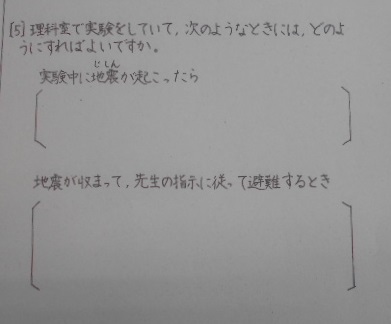 [5] 理科室で実験をしていて，次のようなときには，どのよ
うにすればよいですか。
じしん
実験中に地震が起こったら
地震が収まって，先生の指示に従って避難するとき